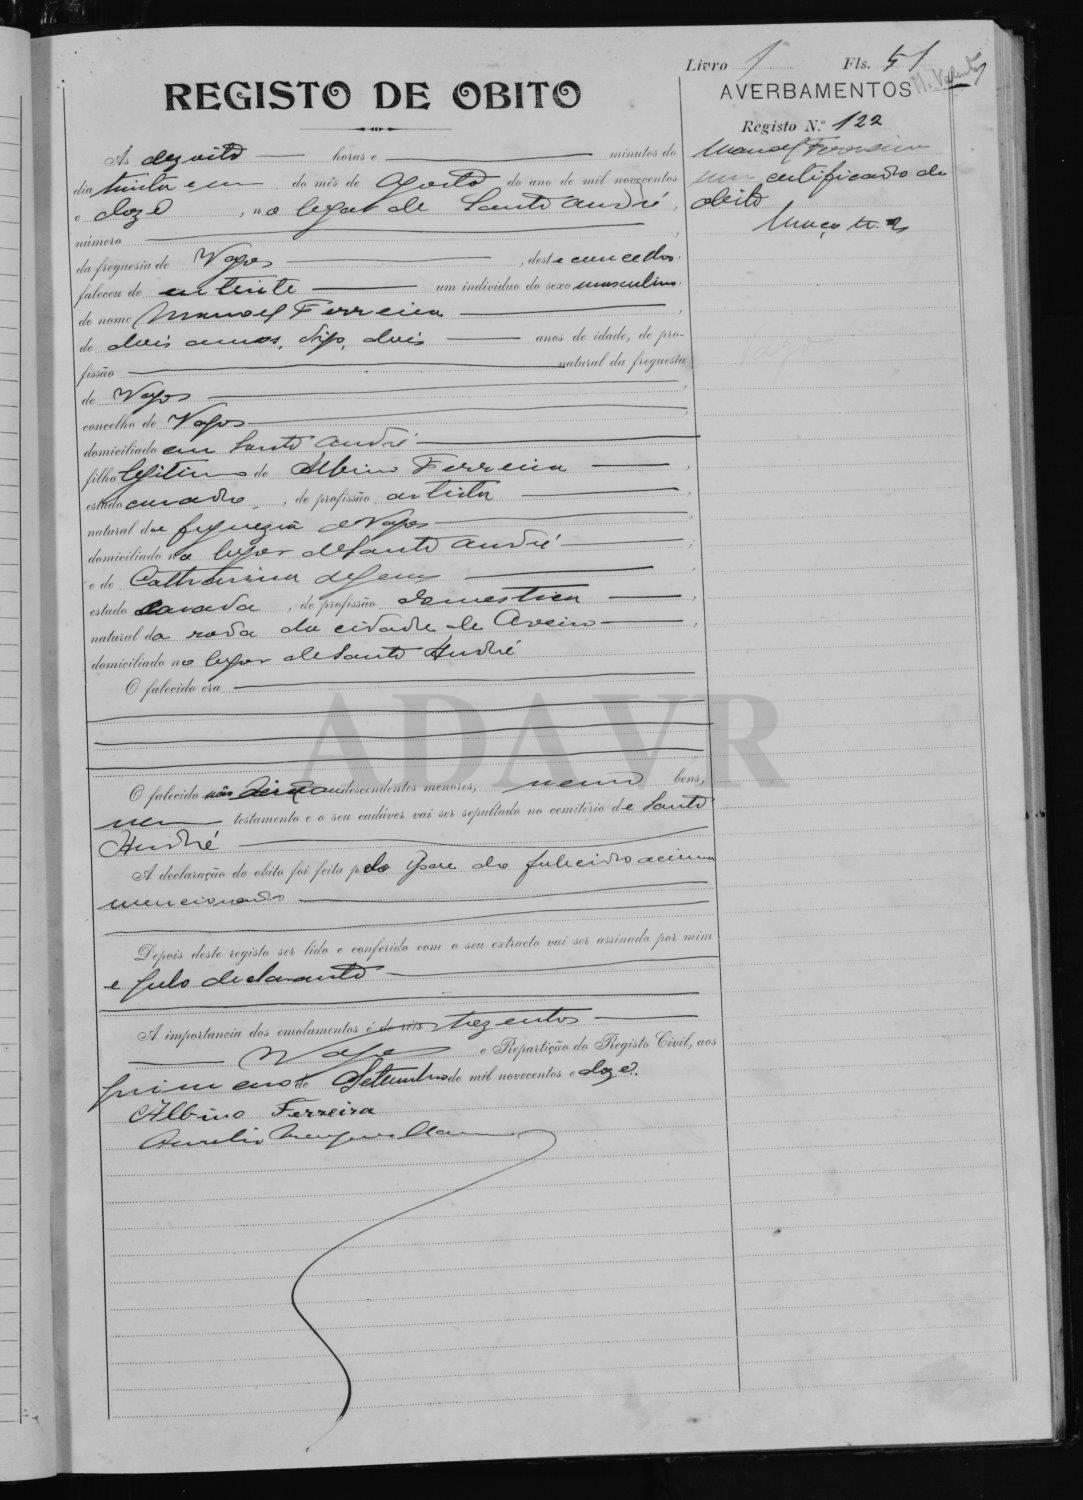 Livro 1 Fls. 51
REGISTO DE OBITO
AVERBAMENTOS
Registo N.º 122
Manoel Ferreira
um certificado de
obito
Maço n.º 2
Ás dezoito horas e minutos do
dia trinta e um do mês de Agosto do ano de mil novecentos
e doze, no logar de Santo André,
número
da freguesia de Vagos, deste concelho
faleceu de enterite um individuo do sexo masculino
de nome Manoel Ferreira
de dois annos, digo, dois anos de idade, de pro-
fissão natural da freguesia
de Vagos
concelho de Vagos
domiciliado em Santo André
filho legitimo de Albino Ferreira
estado casado, de profissão artista
natural da freguezia de Vagos
domiciliado no logar de Santo André
e de Catharina de Jesus
estado casada, de profissão domestica
natural da roda da cidade de Aveiro
domiciliado no logar de Santo André
O falecido era
ADAVR
O falecido não deixou descendentes menores, nem bens,
nem testamento e o seu cadáver vai ser sepultado no cemitério de Santo
André
A declaração do obito foi feita pelo pae do falecido acima
mencionado
Depois deste registo ser lido e conferido com o seu extracto vai ser assinado por mim
e pelo declarante
A importancia dos emolumentos é de réis trezentos
Vagos e Repartição do Registo Civil, aos
primeiro de Setembro de mil novecentos e doze.
Albino Ferreira
Aurelio